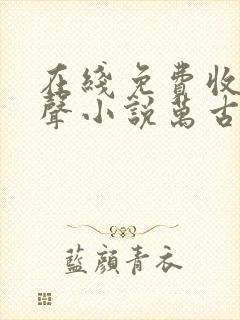 在綫免費收
聲小説萬古
藍顔青衣